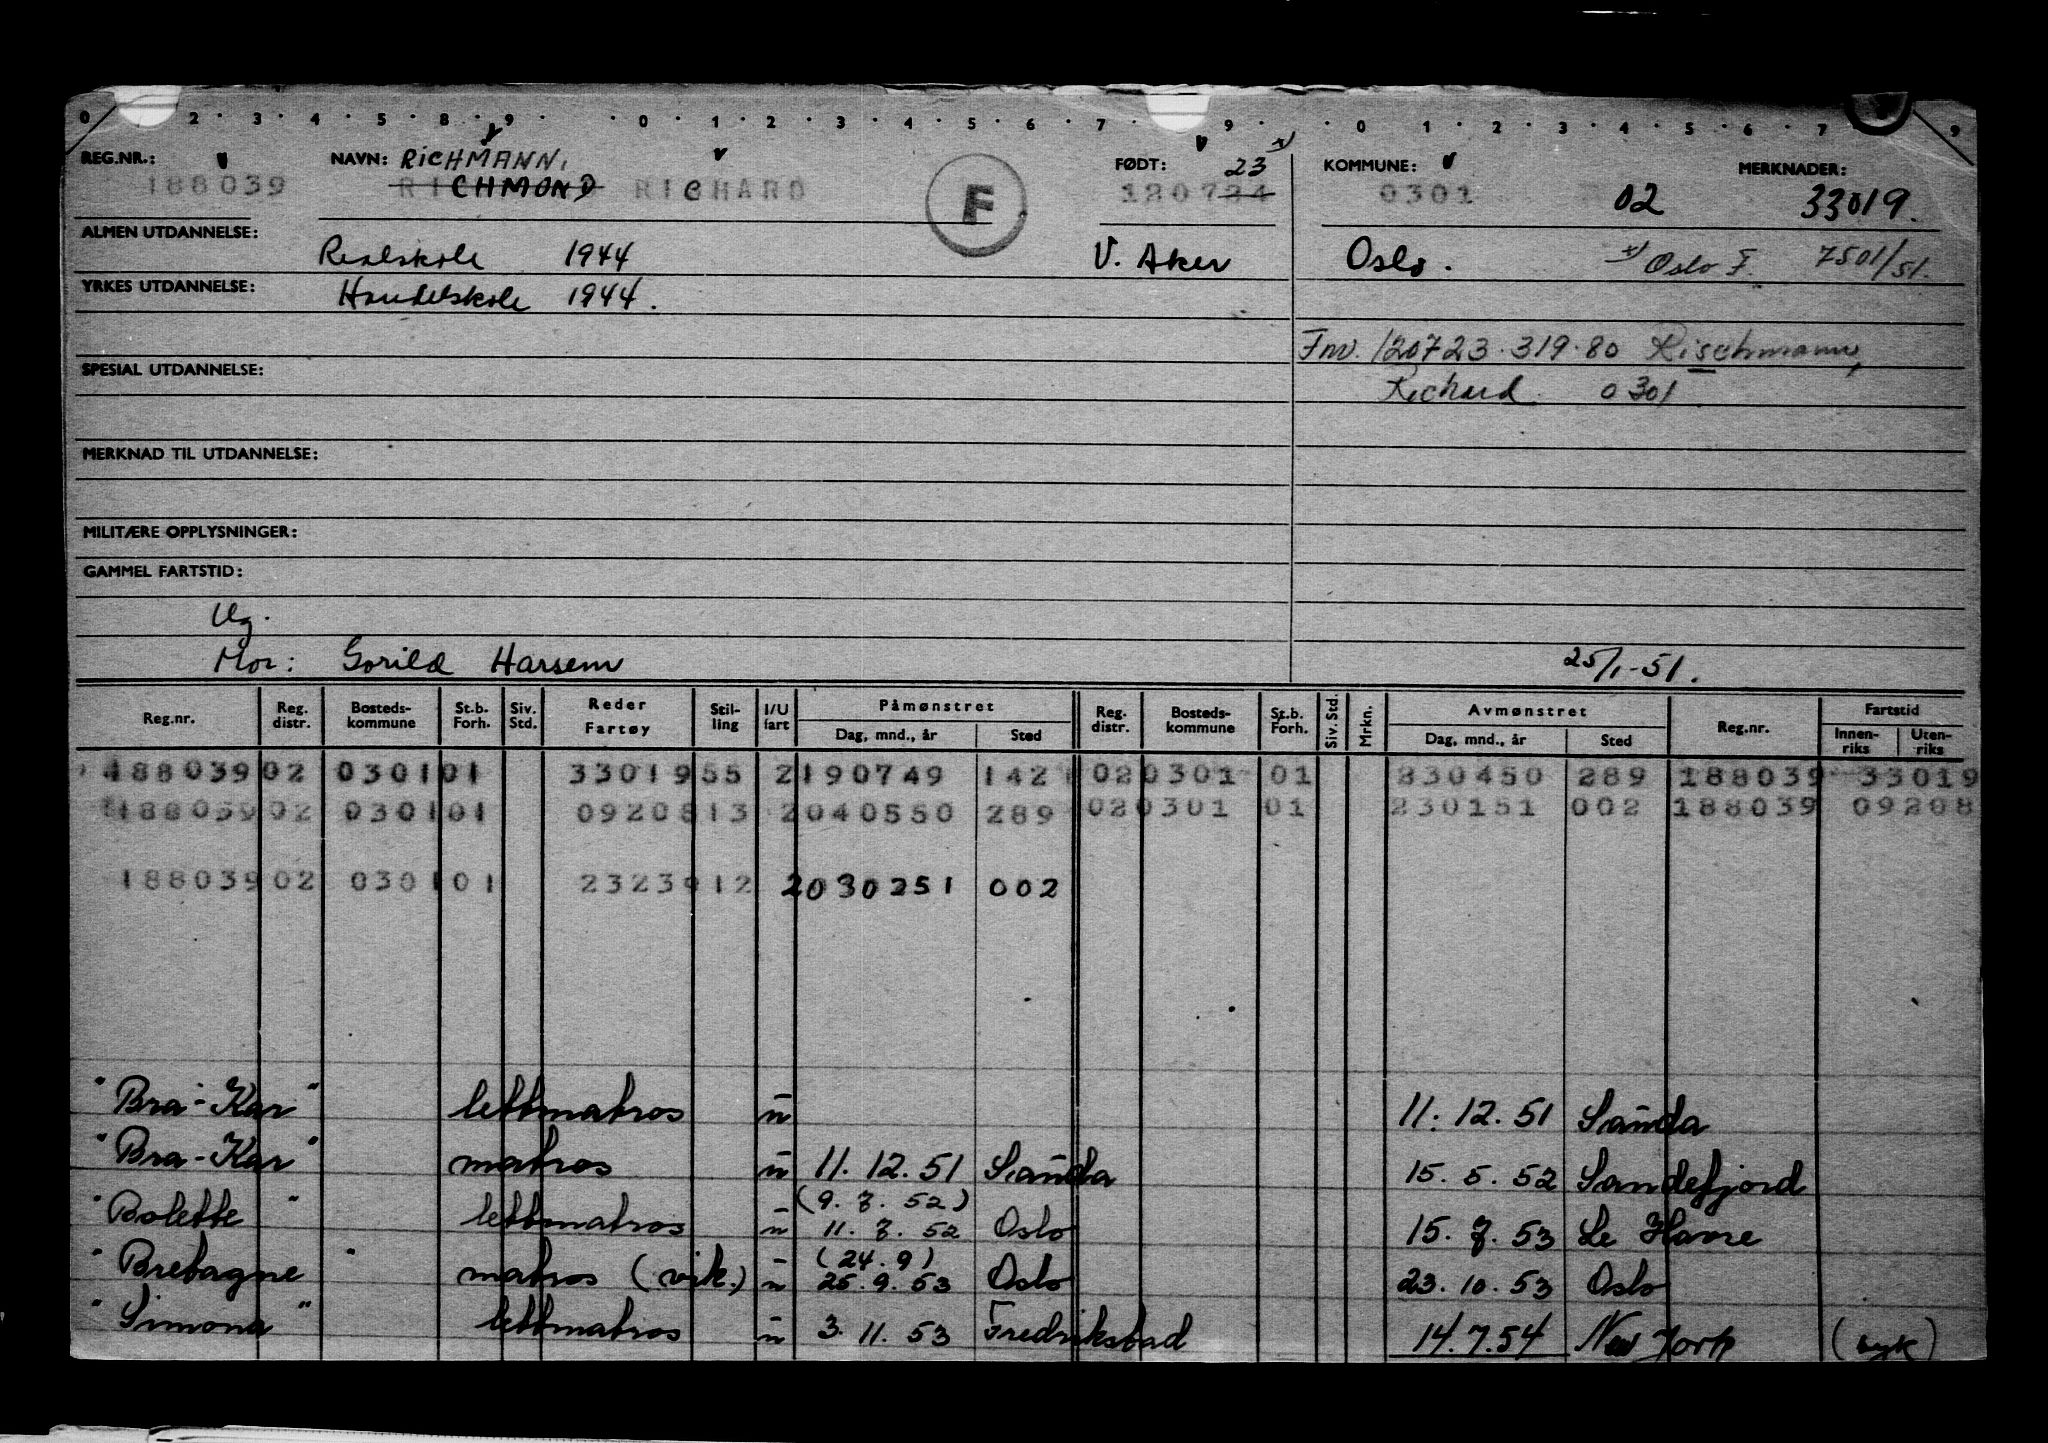 0 2 3 4 5 8 9 0 1 2 3 4 5 6 7 9 0 1 2 3 4 5 6 7 9
REG.NR.: NAVN: RICHMANN, FØDT: 23 x) KOMMUNE: MERKNADER:
188039 RICHMOND RICHARD F 120724 0301 02 33019.
ALMEN UTDANNELSE: Realskole 1944 V. Aker Oslo. x) Oslo F. 7501/51.
YRKES UTDANNELSE: Handelskole 1944.
Fnr. 120723.319.80 Rischmann,
SPESIAL UTDANNELSE: Richard 0301
MERKNAD TIL UTDANNELSE:
MILITÆRE OPPLYSNINGER:
GAMMEL FARTSTID:
Ug.
Mor: Gorild Harsem 25/1-51.
Reg.nr. Reg. distr. Bosteds-kommune St.b. Forh. Siv. Std. Reder Fartøy Stil-ling I/U fart Påmønstret Dag, mnd., år Sted Reg. distr. Bosteds-kommune St.b. Forh. Siv. Std. Mrkn. Avmønstret Dag, mnd., år Sted Reg.nr. Fartstid Innen-riks Uten-riks
188039 02 0301 01 33019 55 2 190749 142 02 0301 01 230450 289 188039 33019
188039 02 0301 01 09208 13 2 040550 289 02 0301 01 230151 002 188039 09208
188039 02 0301 01 23239 12 2 030251 002
"Bra-Kar" lettmatros u 11.12.51 Sauda
"Bra-Kar" matros u 11.12.51 Sauda 15.5.52 Sandefjord
(9.7.52)
"Bolette" lettmatros u 11.7.52 Oslo 15.7.53 Le Havre
(24.9)
"Bretagne" matros (vik.) u 25.9.53 Oslo 23.10.53 Oslo
"Simona" lettmatros u 3.11.53 Fredrikstad 14.7.54 New York (syk)